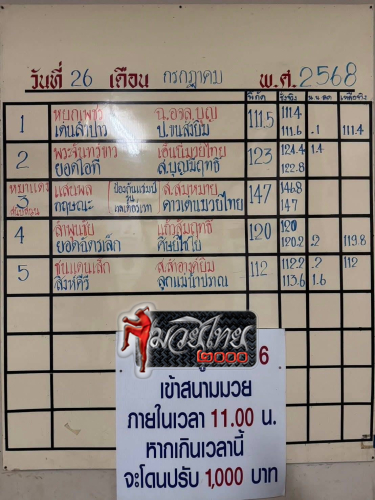 วันที่ 26 เดือน กรกฎาคม พ.ศ. 2568
พิกัด ชั่งจริง น.น.ลด เหลือจริง
1 หยกเพชร ฉ.อจลบุญ 111.5 111.4
เด่นลำปาว ป.จานสิงยิม 111.6 .1 111.4
2 พระจันทร์ขาว เอ็นยิมมวยไทย 123 124.4 1.4
ยอดโอที ส.บุญมีฤทธิ์ 122.8
3 แสนพล ส.สมหมาย 147 146.8
กฤษณะ ดาวเด่นมวยไทย 147
4 ลำพูนชัย แก้วสัมฤทธิ์ 120 120
ยอดขุนเล็ก ศิษย์ไชโย 120.2 .2 119.8
5 ขุนแดนเล็ก ส.สำอางค์ยิม 112 112.2 .2 112
สิงห์คีรี ลูกแม่น้ำปทุม 113.6 1.6
มวยไทย
๒๐๐๐
6
เข้าสนามมวย
ภายในเวลา 11.00 น.
หากเกินเวลานี้
จะโดนปรับ 1,000 บาท